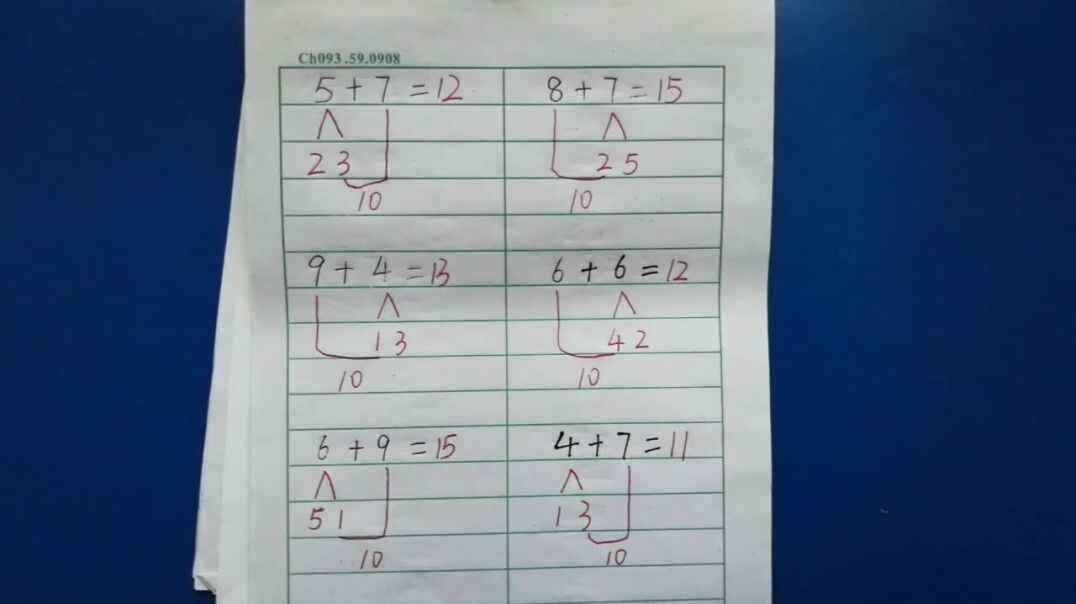 Ch093.59.0908
5 + 7 = 12
2 3
10
8 + 7 = 15
2 5
10
9 + 4 = 13
1 3
10
6 + 6 = 12
4 2
10
6 + 9 = 15
5 1
10
4 + 7 = 11
1 3
10